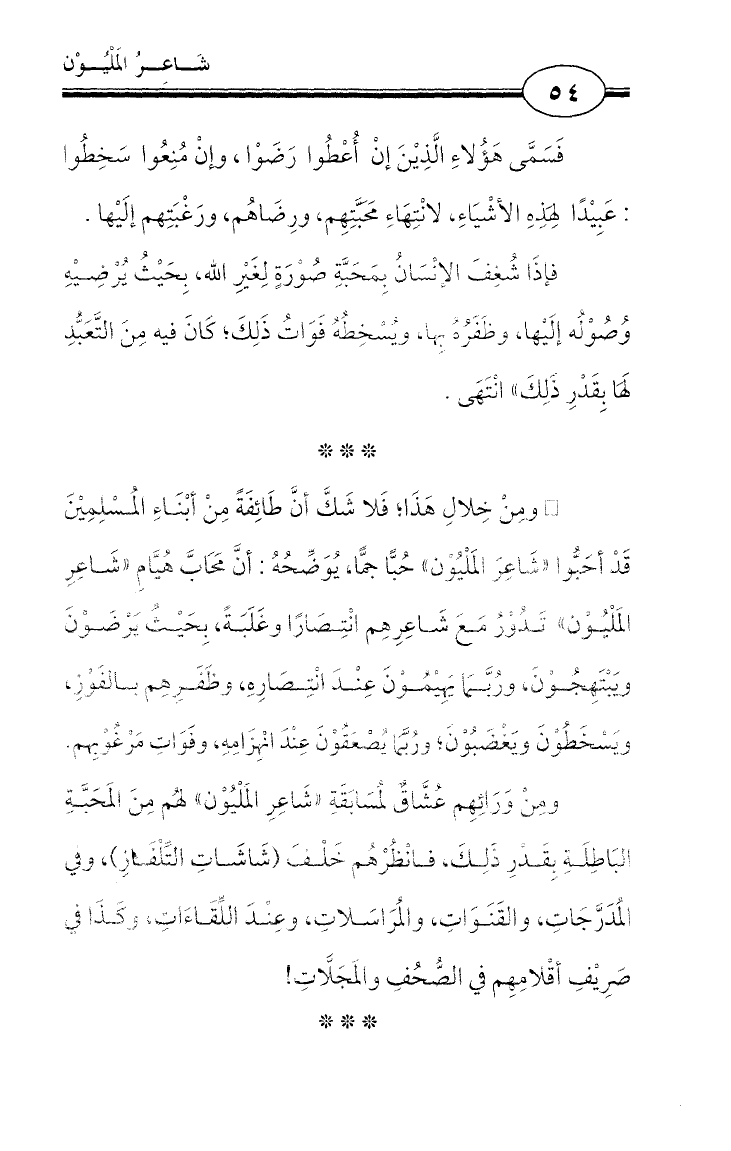 شَــاعِــرُ المَلْيُــوْن
٥٤
فَسَمَّى هَؤُلاءِ الَّذِيْنَ إنْ أُعْطُوا رَضَوْا، وإنْ مُنِعُوا سَخِطُوا
: عَبِيْدًا لهَذِهِ الأشْيَاءِ، لانْتِهَاءِ مَحَبَّتِهِم، ورِضَاهُم، ورَغْبَتِهِم إلَيْها .
فإذَا شُغِفَ الإنْسَانُ بِمَحَبَّةِ صُوْرَةٍ لغَيْرِ الله، بِحَيْثُ يُرْضِيْهِ
وُصُوْلُه إلَيْها، وظَفَرُهُ بِها، ويُسْخِطُهُ فَوَاتُ ذَلِكَ؛ كَانَ فيه مِنَ التَّعَبُّدِ
لَهَا بِقَدْرِ ذَلِكَ» انْتَهَى .
* * *
□ ومِنْ خِلالِ هَذَا؛ فَلا شَكَّ أنَّ طَائِفَةً مِنْ أبْنَاءِ المُسْلِمِيْنَ
قَدْ أحَبُّوا «شَاعِرَ المَلْيُوْن» حُبًّا جمًّا، يُوَضِّحُهُ : أنَّ مَحَابَّ هُيَّامِ «شَــاعِرِ
المَلْيُـوْن» تَــدُوْرُ مَـعَ شَــاعِرِهِم انْتِصَارًا وغَلَبَةً، بِحَيْثُ يَرْضَــوْنَ
ويَبْتَهِجُــوْنَ، ورُبَّــمَا يَهِيْمُــوْنَ عِنْــدَ انْتِــصَارِهِ، وظَفَــرِهِم بــالفَوْزِ،
ويَسْخَطُوْنَ ويَغْضَبُوْنَ؛ ورُبَّمَا يُصْعَقُوْنَ عِنْدَ انْهِزَامِهِ، وفَوَاتِ مَرْغُوْبِهِم.
ومِنْ وَرَائِهِم عُشَّاقٌ لمُسَابَقَةِ «شَاعِرِ المَلْيُوْن» لهُم مِنَ المَحَبَّةِ
البَاطِلَـةِ بِقَـدْرِ ذَلِـكَ، فَــانْظُرْهُم خَلْـفَ (شَاشَـاتِ التِّلْفَـازِ)، وفي
المُدَرَّجَاتِ، والقَنَـوَاتِ، والمُرَاسَـلاتِ، وعِنْـدَ اللِّقَـاءَاتِ، وكَـذَا في
صَرِيْفِ أقْلامِهِم في الصُّحُفِ والمَجَلَّاتِ!
* * *